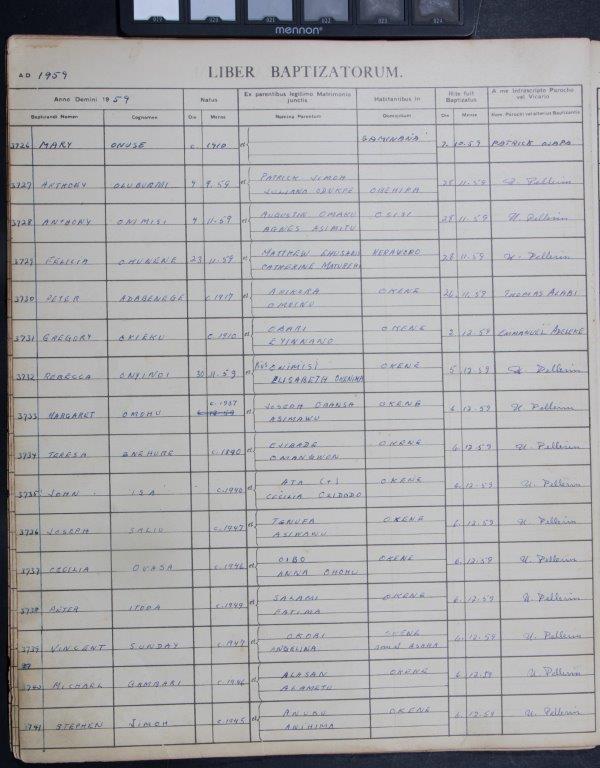 019 020 021 022 023 024
mennon
A D 1959 LIBER BAPTIZATORUM.
Anno Domini 1959 Natus Ex parentibus legitimo Matrimonio junctis Habitantibus in Rite fuit Baptizatus A me infrascripto Parocho vel Vicario
Baptizandi Nomen Cognomen Die Mense Nomina Parentum Domicilium Die Mense Nom. Parochi vel alterius Baptizantis
3726 MARY ONUSE c 1910 et GAMINANA 7. 10.59 PATRICK OJAPA
3727 ANTHONY OLUBUNMI 9 9.59 et PATRICK JIMOH
JULIANA ODUKPE OBEHIRA 28 11.59 U. Pellerin
3728 ANTHONY ONIMISI 4 11.59 et AUGUSTIN OMAKU OSISI 28 11.59 U. Pellerin
AGNES ASIMITU
3729 FELICIA OHUNENE 23 11.59 et MATTHEW EHUSANI 28 11.59 U. Pellerin
CATHERINE
3730 PETER ADABENEGE c 1917 et OKENE 26. 11.59 THOMAS ALABI
OMOINU
3731 GREGORY OKIEKU c 1910 et OKENE 2 12.59 EMMANUEL ADELEKE
EYINNANO
3732 REBECCA ONYINOI 30 11.59 et ONIMISI OKENE 5 12.59 U. Pellerin
ELISABETH OKENIMA
c. 1937
3733 MARGARET OMOHU et JOSEPH OBANSA OKENE 6 12.59 U. Pellerin
ASIMAWU
3734 TERESA ENEHURE c. 1890 et EJIBADE OKENE 6. 12.59 U. Pellerin
OMANGWON
3735 JOHN ISA c. 1940 et ATA (+) OKENE 6. 12.59 U. Pellerin
CECILIA OZIDODO
3736 JOSEPH SALIU c. 1947 et TENUFA OKENE 6. 12.59 U. Pellerin
ASIWANU
3737 CECILIA OVASA c. 1946 et OIBO OKENE 6. 12.59 U. Pellerin
ANNA OHOMU
3738 PETER ITODA c. 1949 et SALAMI OKENE 6. 12.59 U. Pellerin
FATIMA
3739 VINCENT SUNDAY c. 1947 et OKORI OKENE 6. 12.59 U. Pellerin
ANGELINA
3740 MICHAEL GAMBARI c. 1946 et ALASAN OKENE 6 12.59 U. Pellerin
ALAMETU
3741 STEPHEN JIMOH c. 1945 et ANUKU OKENE 6 12.59 U. Pellerin
ANIHIMA